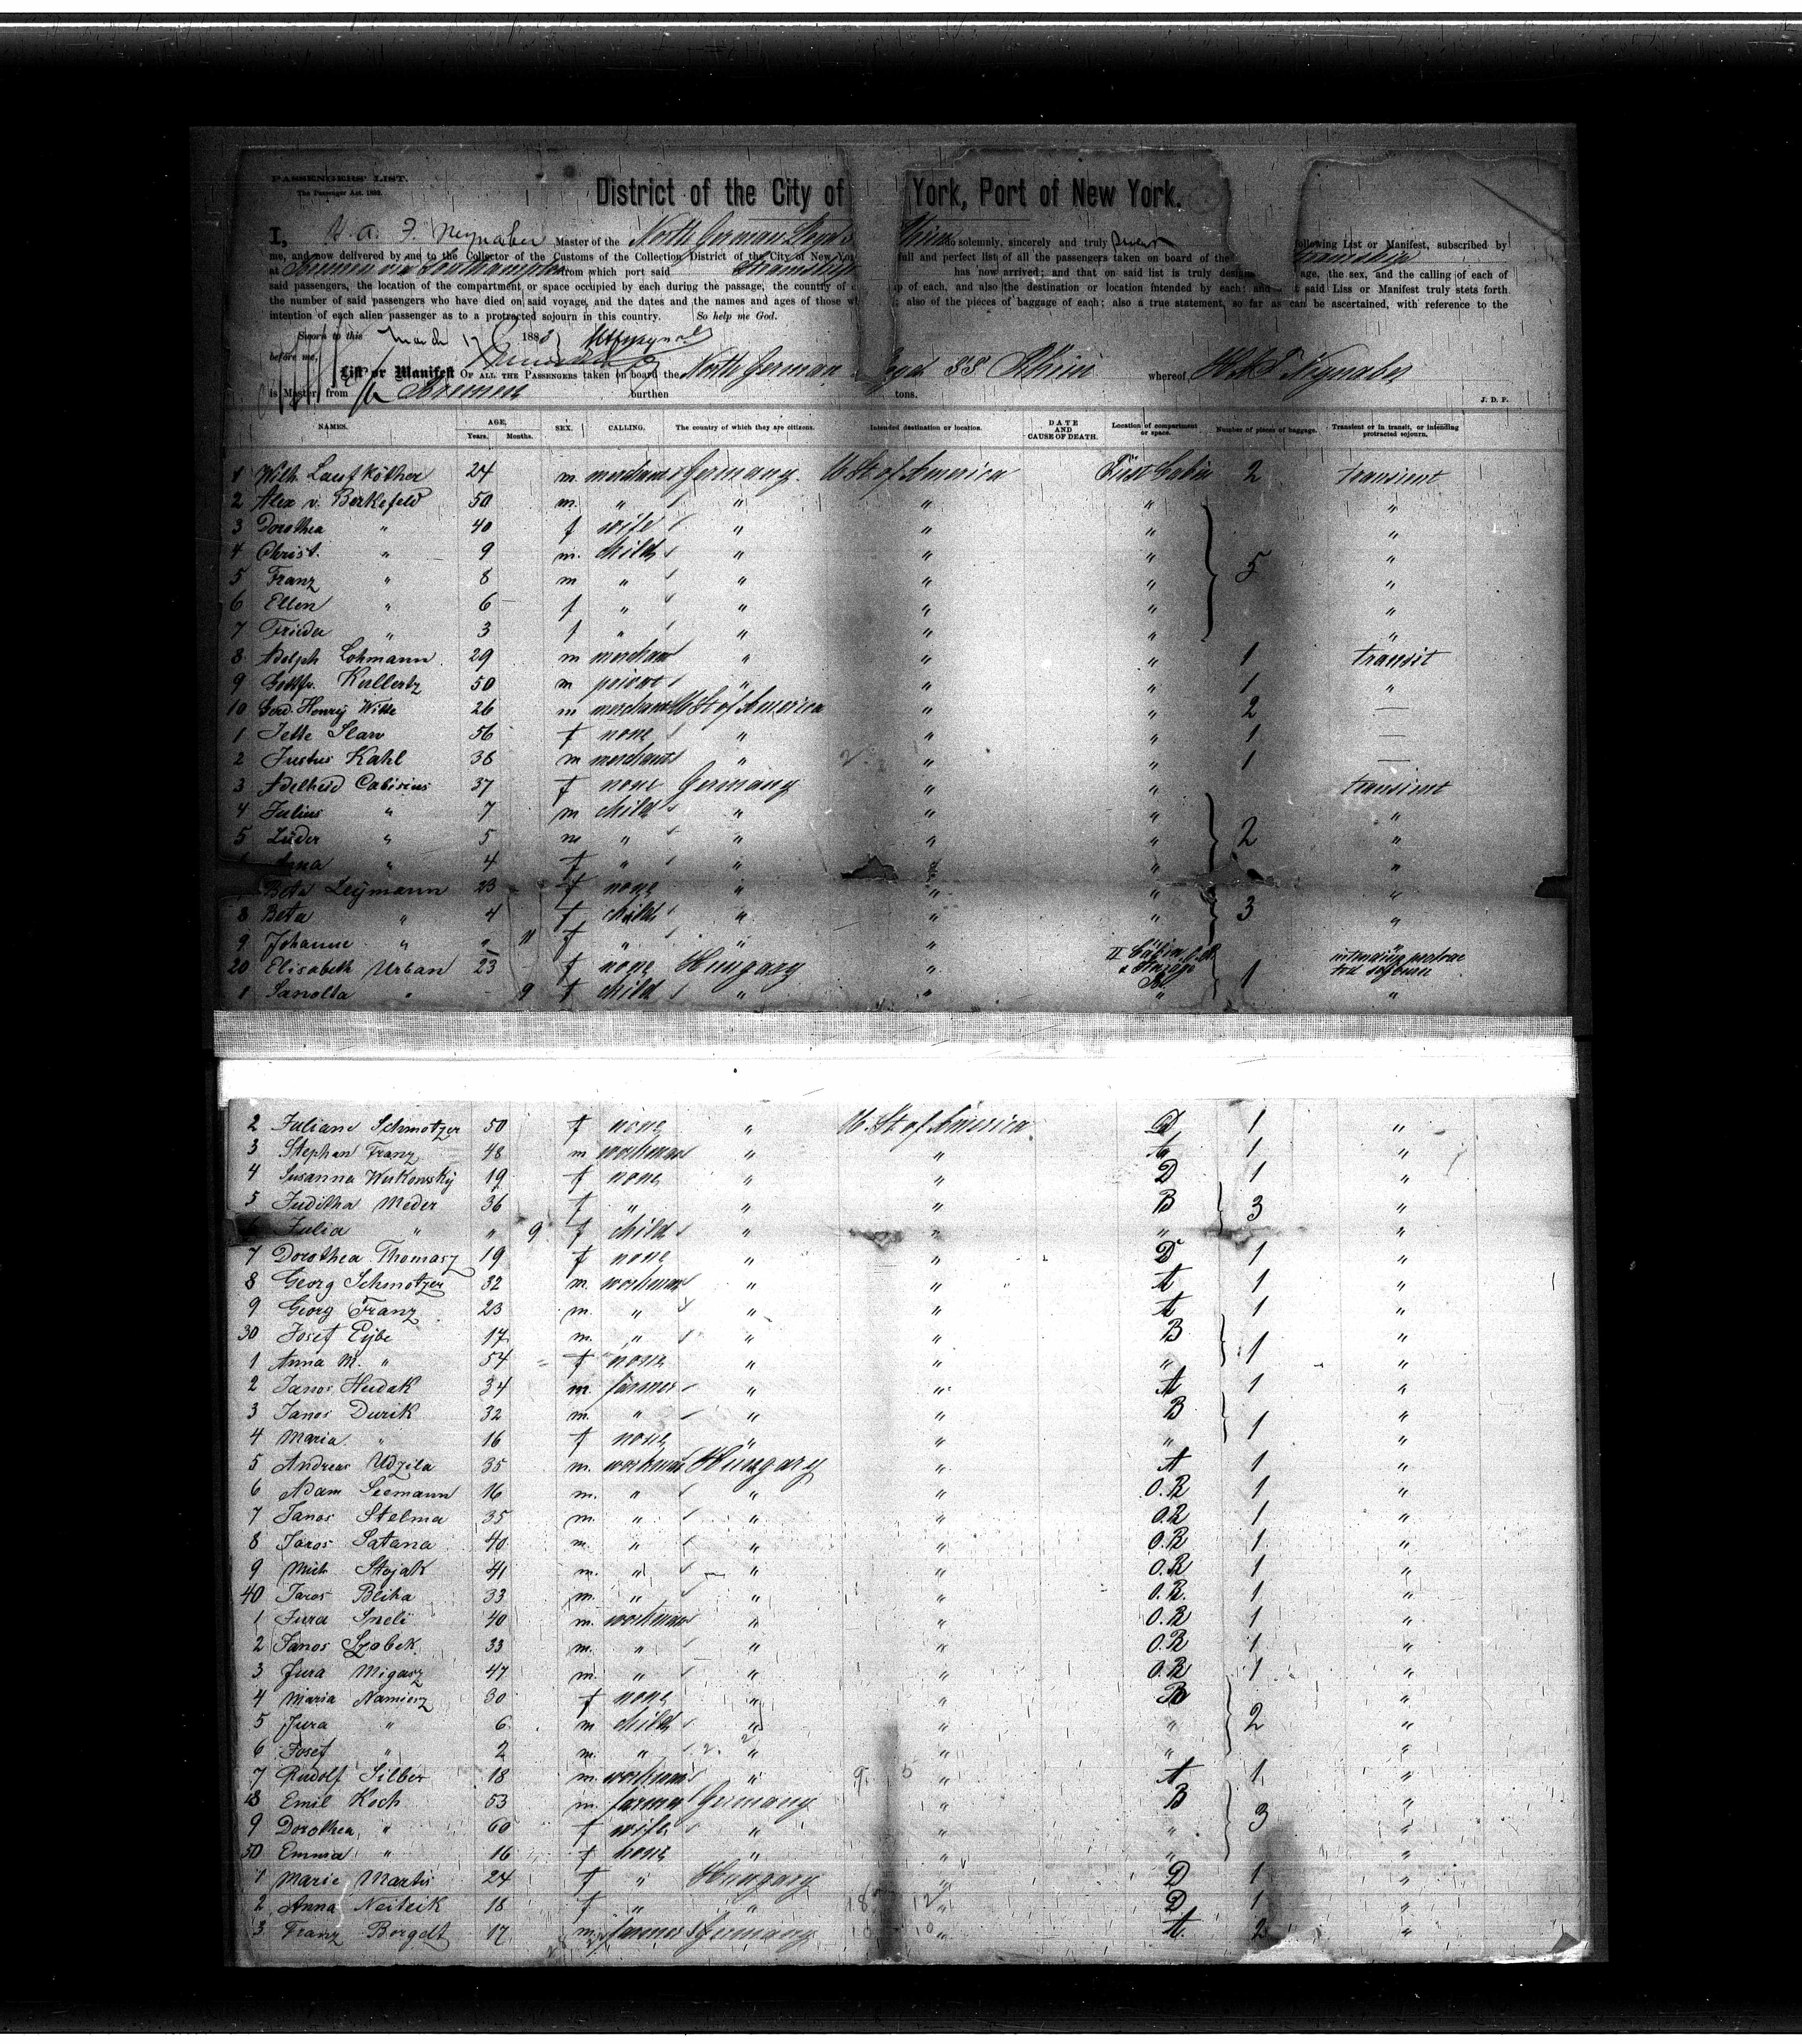 PASSENGERS' LIST.
The Passenger Act, 1882.
District of the City of York, Port of New York.
I, H. A. F. Neynaber Master of the North German Lloyd S Rhein do solemnly, sincerely and truly swear following List or Manifest, subscribed by
me, and now delivered by me to the Collector of the Customs of the Collection District of the City of New Yor full and perfect list of all the passengers taken on board of the Steamship
at Bremen via Southampton from which port said Steamship has now arrived; and that on said list is truly design age, the sex, and the calling of each of
said passengers, the location of the compartment or space occupied by each during the passage, the country of p of each, and also the destination or location intended by each; and t said Liss or Manifest truly stets forth
the number of said passengers who have died on said voyage, and the dates and the names and ages of those wh ; also of the pieces of baggage of each; also a true statement, so far as can be ascertained, with reference to the
intention of each alien passenger as to a protracted sojourn in this country. So help me God.
Sworn to this March 17 1883
before me,
List or Manifest OF ALL THE PASSENGERS taken on board the North German Lloyd SS Rhein whereof, H.A.F. Neynaber
is Master, from Bremen burthen tons. J. D. P.
NAMES. AGE. Years. Months. SEX. CALLING. The country of which they are citizens. Intended destination or location. DATE AND CAUSE OF DEATH. Location of compartment or space. Number of pieces of baggage. Transient or in transit, or intending protracted sojourn.
1 Wilh. Laufköther 24 m merchant Germany. U St of America First Cabin 2 transient
2 Alex v. Berkefeld 50 m. " " " " "
3 Dorothea " 40 f wife " " " "
4 Christ. " 9 m. child " " " "
5 Franz " 8 m " " " " 5 "
6 Ellen " 6 f " " " " "
7 Frieda " 3 f " " " " "
8 Adolph Lohmann 29 m merchant " " " 1 transit
9 Gottfr. Kullertz 50 m privat " " " 1 "
10 Gerd. Henry Witte 26 m merchant U St of America " " 2 —
1 Jette Slaw 56 f none " " " 1 —
2 Justus Kahl 38 m merchant " " " 1 —
3 Adelheid Cabisius 37 f none Germany " " transient
4 Julius " 7 m child " " " "
5 Lüder " 5 m " " " " 2 "
Anna " 4 f " " " " "
Beta Leymann 23 f none " " " "
8 Beta " 4 f child " " " 3 "
9 Johanne " " 11 f " " " " "
20 Elisabeth Urban 23 f none Hungary " II Cabin, O.R. & Steerage 1 intending protracted sojourn
1 Sanolta " - 9 f child " " " "
2 Juliane Schmotzer 50 f none " U. St of America D 1 "
3 Stephan Franz 48 m workman " " A 1 "
4 Susanna Wukowsky 19 f none " " D 1 "
5 Juditha Meder 36 f " " " B 3 "
6 Julia " " 9 f child " " " "
7 Dorothea Thomasz 19 f none " " D 1 "
8 Georg Schmotzer 32 m. workman " " A 1 "
9 Georg Franz 23 m. " " " A 1 "
30 Josef Eybe 17 m. " " " B 1 "
1 Anna M. " 54 f none " " " "
2 Janos Hudak 34 m. farmer " " A 1 "
3 Janos Durik 32 m. " " " B 1 "
4 Maria " 16 f none " " " "
5 Andreas Udzila 35 m. workman Hungary " A 1 "
6 Adam Seemann 16 m. " " " O.R 1 "
7 Janos Stelma 35 m. " " " O.R 1 "
8 Janos Satana 40 m. " " " O.R 1 "
9 Mich Stojak 41 m. " " " O.R 1 "
40 Janos Bliha 33 m. " " " O.R. 1 "
1 Jura Sneli 40 m. workman " " O.R 1 "
2 Janos Szabek 33 m. " " " O.R 1 "
3 Jura Migasz 47 m. " " " O.R 1 "
4 Maria Namiesz 30 f none " " B "
5 Jura " 6 m child " " " 2 "
6 Josef " 2 m. " " " " "
7 Rudolf Silber 18 m. workman " " A 1 "
8 Emil Koch 53 m. farmer Germany " B "
9 Dorothea " 60 f wife " " " 3 "
50 Emma " 16 f none " " " "
1 Marie Martis 24 f " Hungary " D 1 "
2 Anna Neitzik 18 f " " " D 1 "
3 Franz Borgelt 17 m. farmer Germany " A. 2 "